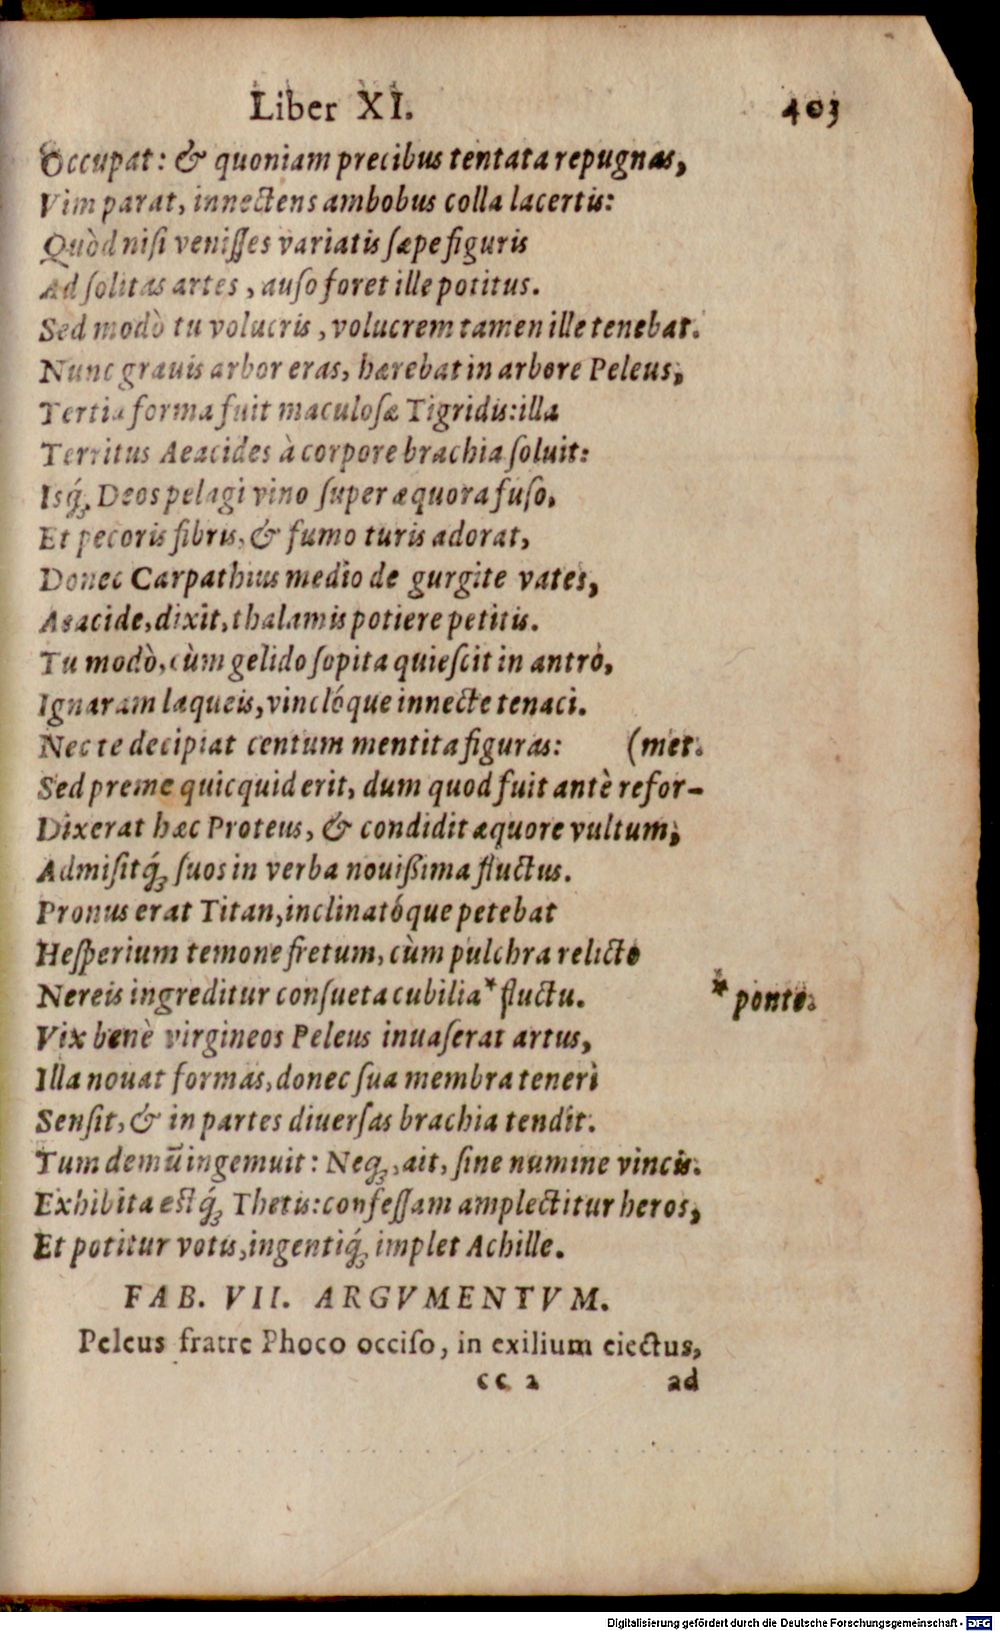 Liber XI. 403
Occupat: & quoniam precibus tentata repugnas,
Vim parat, innectens ambobus colla lacertis:
Quòd nisi venisses variatis sæpe figuris
Ad solitas artes, auso foret ille potitus.
Sed modò tu volucris, volucrem tamen ille tenebat.
Nunc grauis arbor eras, hærebat in arbore Peleus,
Tertia forma fuit maculosæ Tigridis: illa
Territus Aeacides à corpore brachia soluit:
Isq́ꝫ Deos pelagi vino super æquora fuso,
Et pecoris fibris, & fumo turis adorat,
Donec Carpathius medio de gurgite vates,
Aeacide, dixit, thalamis potiere petitis.
Tu modò, cùm gelido sopita quiescit in antro,
Ignaram laqueis, vinclóque innecte tenaci.
Nec te decipiat centum mentita figuras: (met.
Sed preme quicquid erit, dum quod fuit antè refor-
Dixerat hæc Proteus, & condidit æquore vultum,
Admisitq́ꝫ suos in verba nouißima fluctus.
Pronus erat Titan, inclinatóque petebat
Hesperium temone fretum, cùm pulchra relicto
Nereis ingreditur consueta cubilia * fluctu. * ponto.
Vix benè virgineos Peleus inuaserat artus,
Illa nouat formas, donec sua membra teneri
Sensit, & in partes diuersas brachia tendit.
Tum demũ ingemuit: Neqꝫ, ait, sine numine vincis.
Exhibita estq́ꝫ Thetis: confessam amplectitur heros,
Et potitur votis, ingentiq́ꝫ implet Achille.
FAB. VII. ARGVMENTVM.
Peleus fratre Phoco occiso, in exilium eiectus,
cc 2 ad
Digitalisierung gefördert durch die Deutsche Forschungsgemeinschaft - DFG